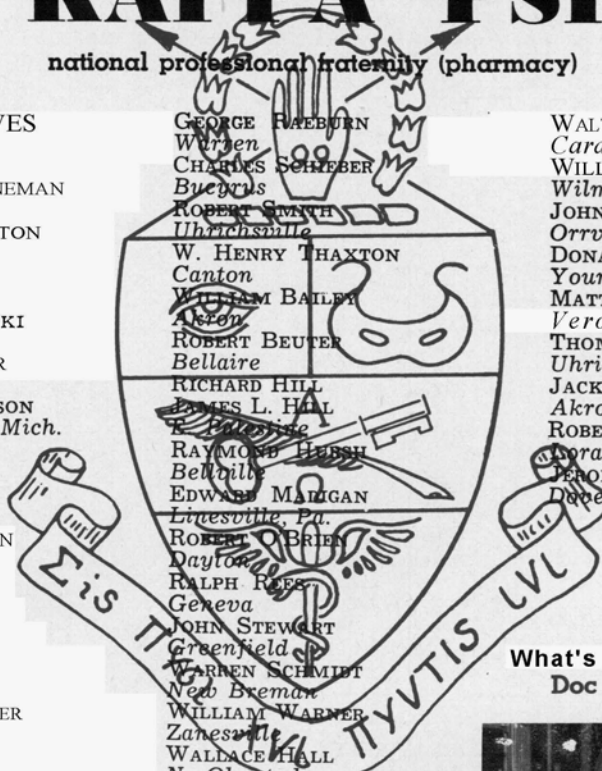 KAPPA PSI
national professional fraternity (pharmacy)
VES
NEMAN
TON
KI
R
SON
Mich.
N
ER
GEORGE RAEBURN
Warren
CHARLES SCHIEBER
Bucyrus
ROBERT SMITH
Uhrichsville
W. HENRY THAXTON
Canton
WILLIAM BAILEY
Akron
ROBERT BEUTER
Bellaire
RICHARD HILL
JAMES L. HILL
E. Palestine
RAYMOND HUBSH
Bellville
EDWARD MADIGAN
Linesville, Pa.
ROBERT O'BRIEN
Dayton
RALPH REES
Geneva
JOHN STEWART
Greenfield
WARREN SCHMIDT
New Breman
WILLIAM WARNER
Zanesville
WALLACE HALL
WAL
Card
WILL
Wilm
JOHN
Orrv
DONA
Your
MATT
Vero
THOM
Uhri
JACK
Akro
ROBE
Lora
JERO
What's
Doc